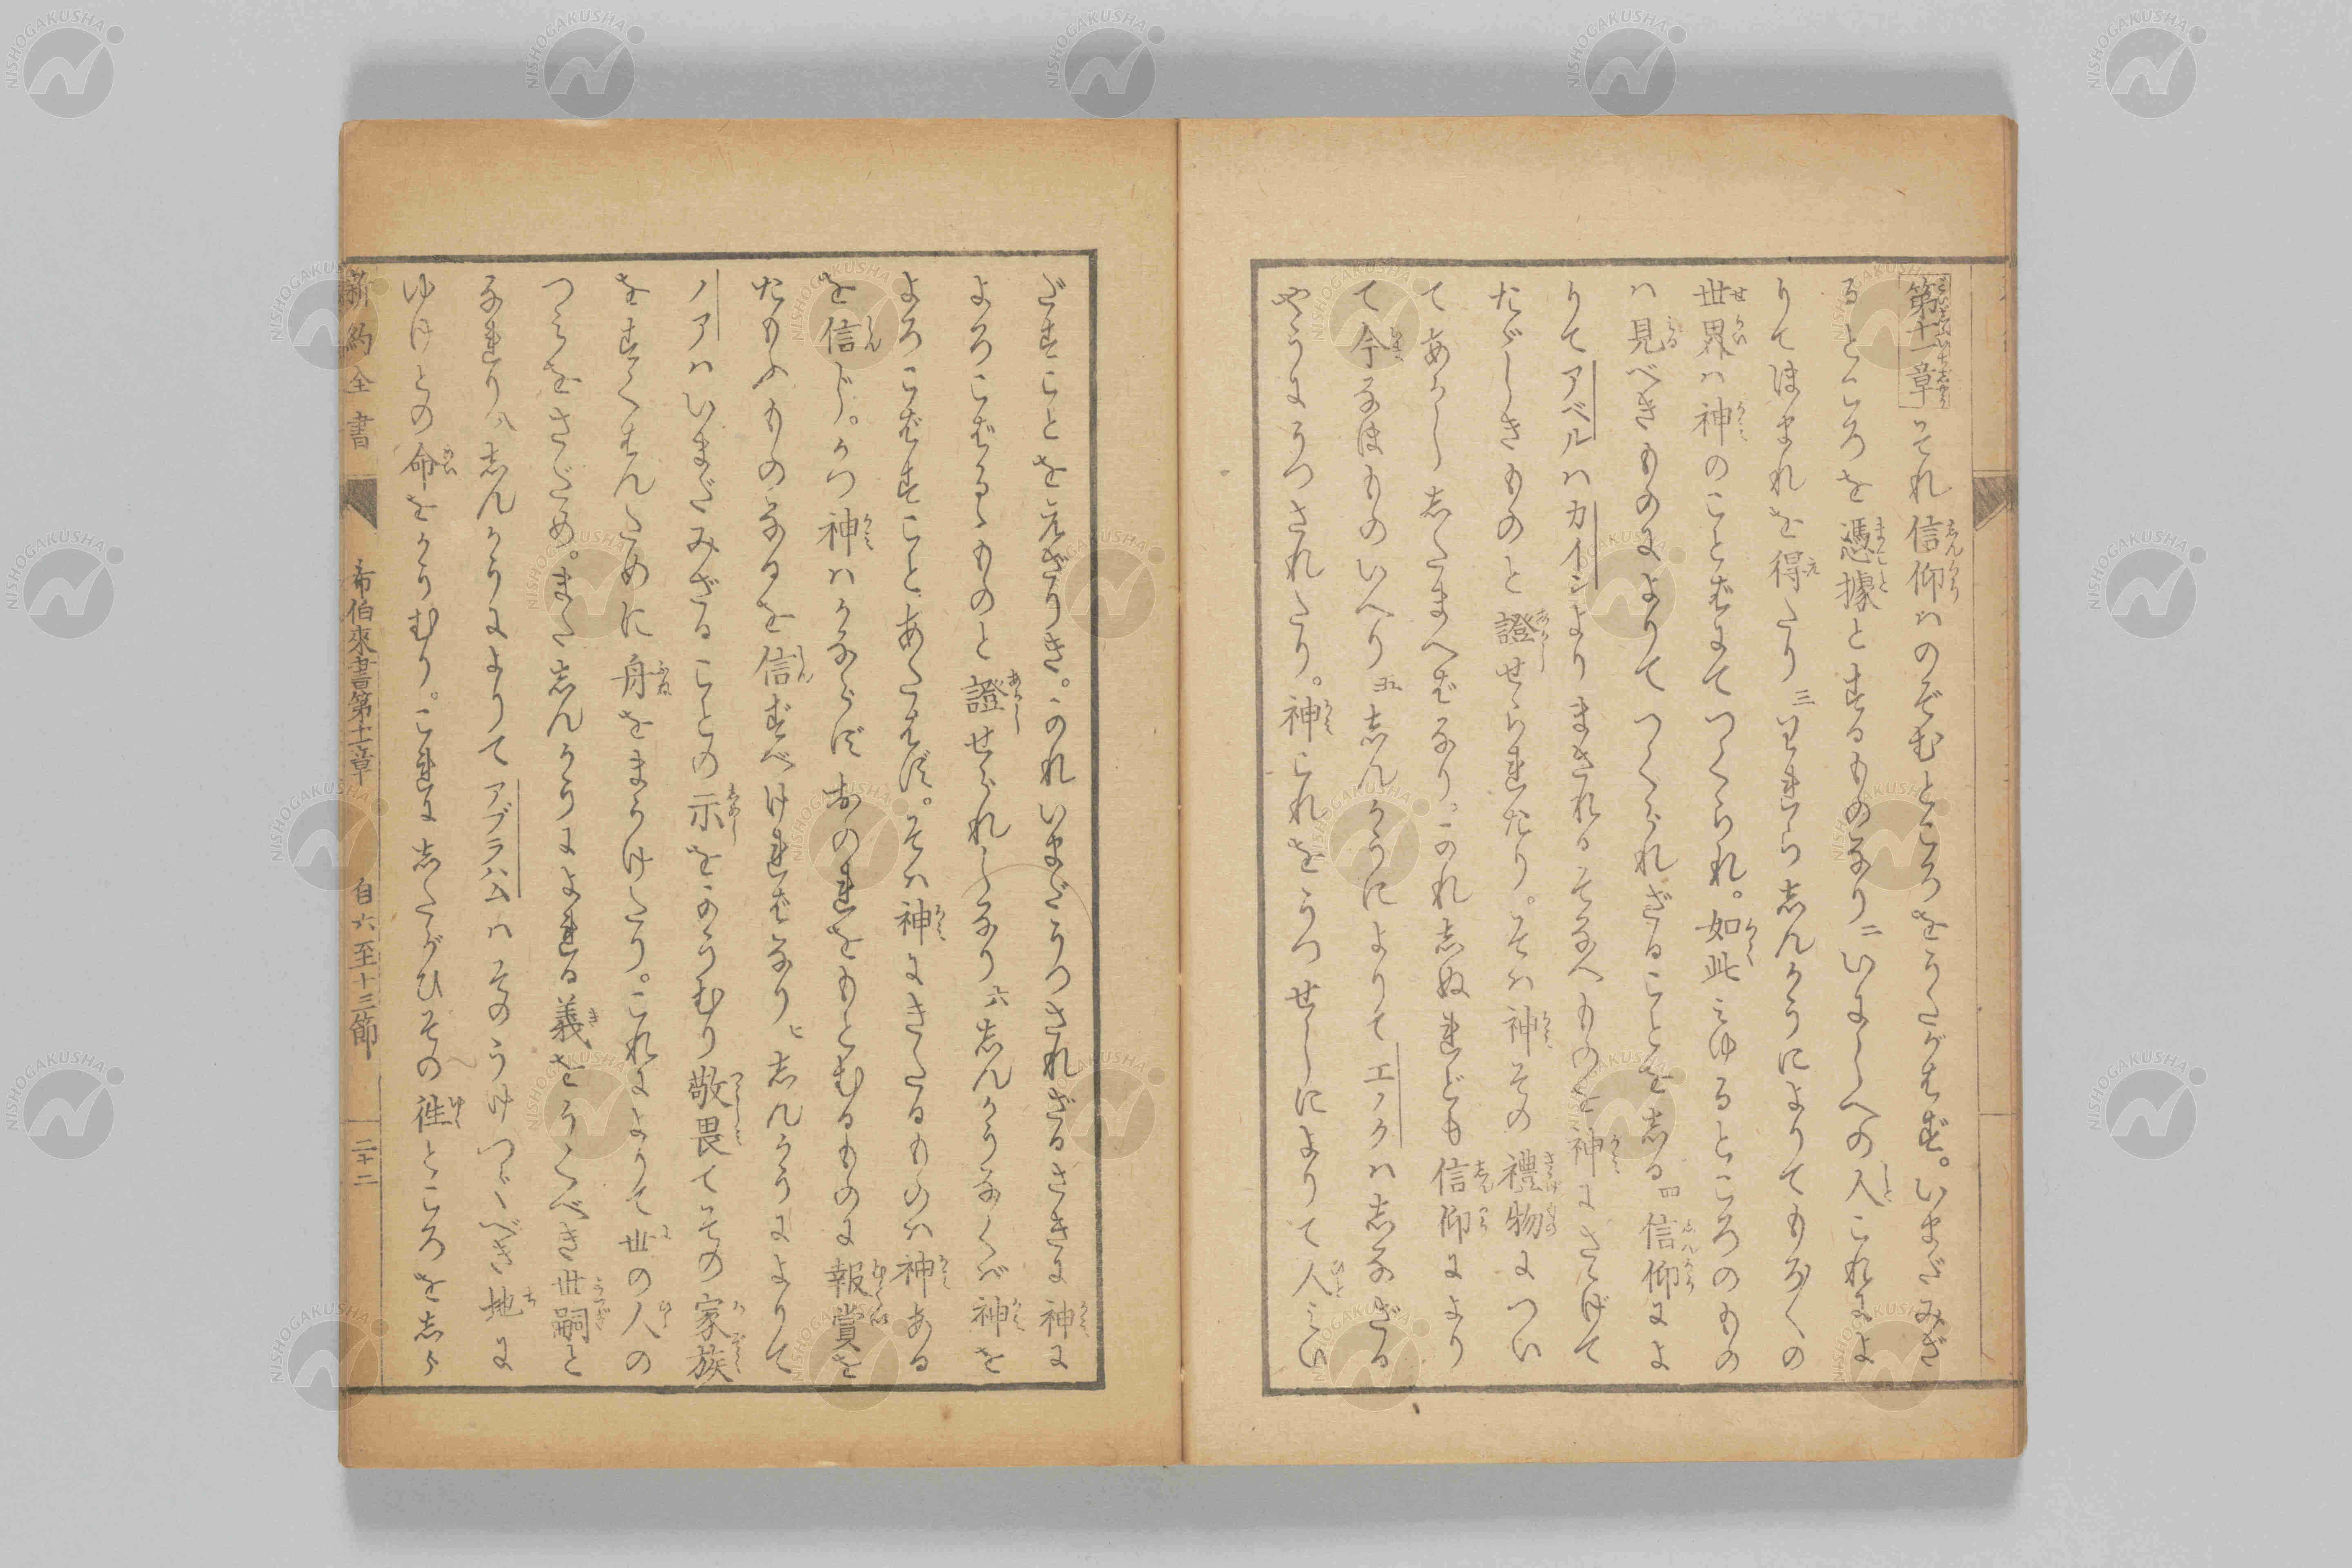 第十一章 それ信仰ハのぞむところをうたがはず。いまだみざ
るところを憑據とするものなり 二 いにしへの人これによ
りてほまれを得たり 三 われらしんかうによりてもろ〳〵の
世界ハ神のことばにてつくられ。如此みゆるところのもの
ハ見べきものによりてつくられざることを志る 四 信仰によ
りてアベルハカインよりまされるそなへものを神にさゝげて
たゞしきものと證せられたり。そハ神その禮物につい
てあかし志たまへばなり。かれ志ぬれども信仰により
て今なほものいへり 五 志んかうによりてエノクハ志なざる
やうにうつされたり。神これをうつせしによりて人みい
だすことをえざりき。かれいまだうつされざるさきに神に
よろこばるゝものと證せられしなり 六 志んかうなくバ神を
よろこばすことあたはず。そハ神にきたるものハ神ある
を信じ。かつ神ハかならずおのれをもとむるものに報賞を
たもふものなるを信ずべければなり 七 志んかうによりて
ノアハいまだみざることの示をかうむり敬畏てその家族
をすくはんために舟をまうけたり。これによりて世の人の
つみをさだめ。また志んかうによれる義をうくべき世嗣と
なれり 八 志んかうによりてアブラハムハそのうけつぐべき地に
ゆけとの命をかうむり。これに志たがひその徃ところを志ら
新約全書 希伯來書第十一章 自六至十三節 二十二